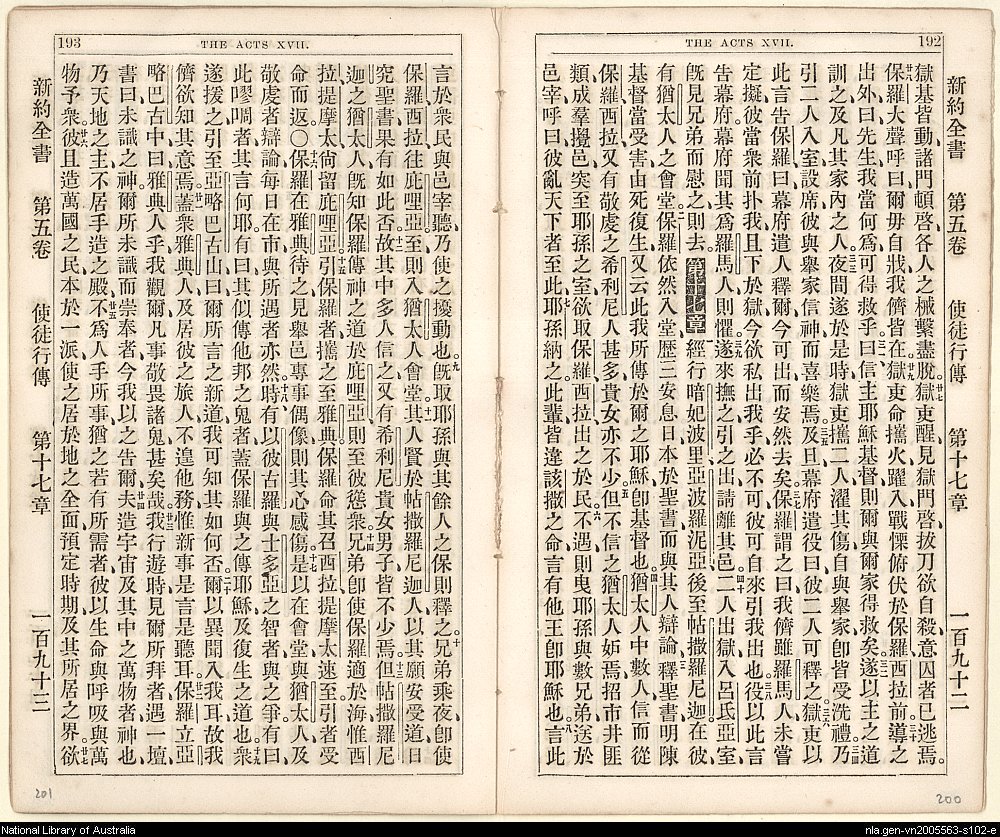 192
THE ACTS XVII.
新約全書 第五卷 使徒行傳 第十七章 一百九十二
獄基皆動、諸門頓啓、各人之械繫盡脫、獄吏醒、見獄門啓、拔刀欲自殺、意囚者已逃焉、
保羅大聲呼曰、爾毋自戕、我儕皆在、獄吏命攜火、躍入、戰慄俯伏於保羅西拉前、導之
出外、曰、先生、我當何爲可得救乎、曰、信主耶穌基督、則爾與爾家得救矣、遂以主之道
訓之、及凡其家內之人、夜間遂於是時、獄吏攜二人、濯其傷、自與舉家卽皆受洗禮、乃
引二人入室設席、彼與舉家信神而喜樂焉、及旦、幕府遣役曰、彼二人可釋之、獄吏以
此言告保羅曰、幕府遣人釋爾、今可出而安然去矣、保羅謂之曰、我儕雖羅馬人、未嘗
定擬、彼當衆前扑我、且下於獄、今欲私出我乎、必不可、彼可自來引我出也、役以此言
告幕府、幕府聞其爲羅馬人、則懼、遂來撫之、引之出、請離其邑、二人出獄、入呂氏亞室、
旣見兄弟而慰之則去、第十七章 經行暗妃波里、亞波羅泥亞、後至帖撒羅尼迦、在彼
有猶太人之會堂、保羅依然入堂、歷三安息日、本於聖書、而與其人辯論、釋聖書、明陳
基督當受害、由死復生、又云、此我所傳於爾之耶穌、卽基督也、猶太人中數人信而從
保羅西拉、又有敬虔之希利尼人甚多、貴女亦不少、但不信之猶太人妬焉、招市井匪
類、成羣攪邑、突至耶孫之室、欲取保羅西拉、出之於民、不遇、則曳耶孫與數兄弟、送於
邑宰、呼曰、彼亂天下者至此、耶孫納之、此輩皆違該撒之命、言有他王卽耶穌也、言此
193
THE ACTS XVII.
言於衆民與邑宰聽、乃使之擾動也、旣取耶孫與其餘人之保、則釋之、兄弟乘夜、卽使
保羅西拉往庇哩亞、至則入猶太人會堂、其人賢於帖撒羅尼迦人、以其願安受道、日
究聖書、果有如此否、故其中多人信之、又有希利尼貴女男子皆不少焉、但帖撒羅尼
迦之猶太人、旣知保羅傳神之道於庇哩亞、則至彼慫衆、兄弟卽使保羅適於海、惟西
拉提摩太尙留庇哩亞、引保羅者攜之至雅典、保羅命其召西拉提摩太速至、引者受
命而返〇保羅在雅典待之、見舉邑專事偶像、則其心感傷、是以在會堂與猶太人及
敬虔者辯論、每日在市、與所遇者亦然、時有以彼古羅與士多亞之智者與之爭、有曰、
此嘐啁者其言何耶、有曰、其似傳他邦之鬼者、蓋保羅與之傳耶穌及復生之道也、衆
遂援之引至亞略巴古山曰、爾所言之新道、我可知其如何否、爾以異聞入我耳、故我
儕欲知其意焉、蓋衆雅典人及居彼之旅人、不遑他務、惟新事是言是聽耳、保羅立亞
略巴古中曰、雅典人乎、我觀爾凡事敬畏諸鬼甚矣、哉我行遊時、見爾所拜者、遇一壇
書曰、未識之神、爾所未識而崇奉者、今我以之告爾、夫造宇宙及其中之萬物者、神也、
乃天地之主、不居手造之殿、不爲人手所事、猶之若有所需者、彼以生命與呼吸與萬
物予衆、彼且造萬國之民、本於一派、使之居於地之全面、預定時期、及其所居之界、欲
新約全書 第五卷 使徒行傳 第十七章 一百九十三
201
200
National Library of Australia
nla.gen-vn2005563-s102-e